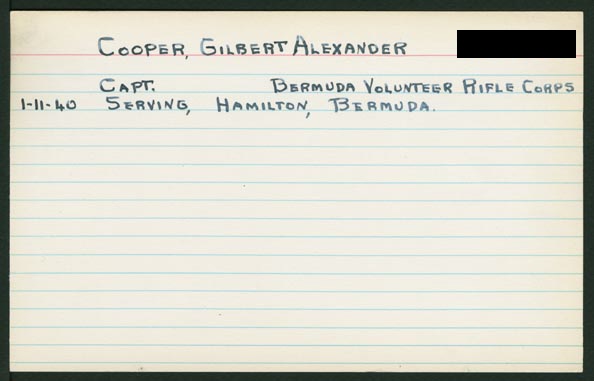 COOPER, GILBERT ALEXANDER
CAPT. BERMUDA VOLUNTEER RIFLE CORPS
1-11-40 SERVING, HAMILTON, BERMUDA.